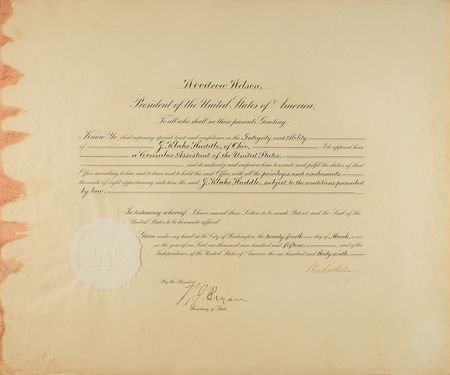 Woodrow Wilson,
President of the United States of America.
To all who shall see these presents, Greeting:
Know Ye, that reposing special trust and confidence in the Integrity and Ability
of J. Klahr Huddle, of Ohio, I do appoint him
a Consular Assistant of the United States,
and do authorize and empower him to execute and fulfil the duties of that
Office according to law and to have and to hold the said Office, with all the privileges and emoluments
thereunto of right appertaining unto him the said J. Klahr Huddle, subject to the conditions prescribed
by law.
In testimony whereof, I have caused these Letters to be made Patent and the Seal of the
United States to be hereunto affixed.
Given under my hand at the City of Washington, the twenty-fourth day of March,
in the year of our Lord one thousand nine hundred and fifteen, and of the
Independence of the United States of America the one hundred and thirty-ninth.
Woodrow Wilson
By the President:
W. J. Bryan
Secretary of State.